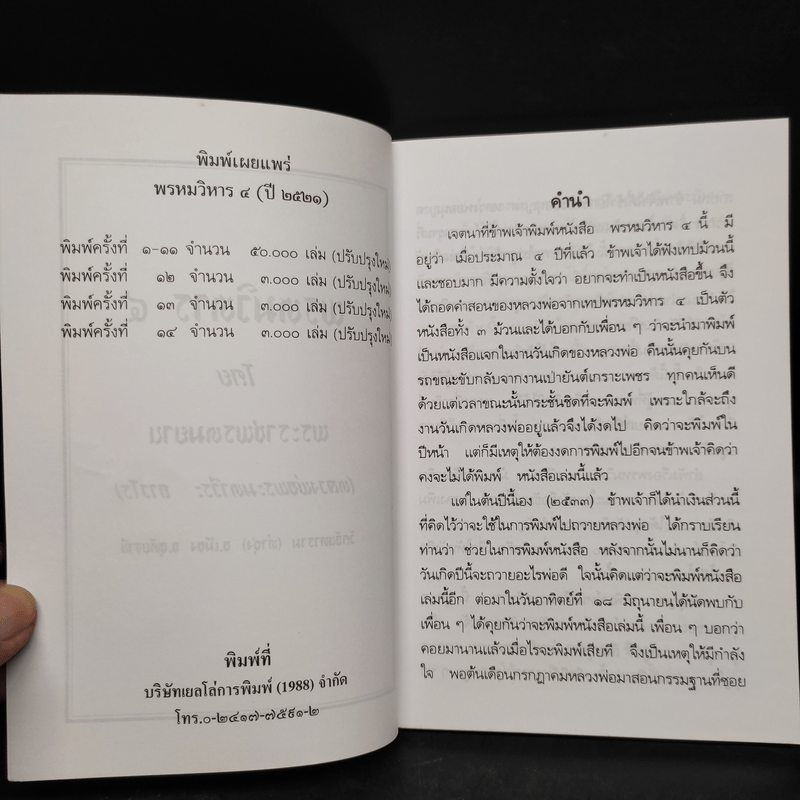 พิมพ์เผยแพร่
พรหมวิหาร ๔ (ปี ๒๕๒๑)
พิมพ์ครั้งที่ ๑-๑๑ จำนวน ๕๐.๐๐๐ เล่ม (ปรับปรุงใหม่)
พิมพ์ครั้งที่ ๑๒ จำนวน ๓.๐๐๐ เล่ม (ปรับปรุงใหม่)
พิมพ์ครั้งที่ ๑๓ จำนวน ๓.๐๐๐ เล่ม (ปรับปรุงใหม่)
พิมพ์ครั้งที่ ๑๔ จำนวน ๓.๐๐๐ เล่ม (ปรับปรุงใหม่)
พิมพ์ที่
บริษัทเยลโล่การพิมพ์ (1988) จำกัด
โทร.๐-๒๔๑๗-๗๕๙๑-๒
คำนำ
เจตนาที่ข้าพเจ้าพิมพ์หนังสือ พรหมวิหาร ๔ นี้ มี
อยู่ว่า เมื่อประมาณ ๔ ปีที่แล้ว ข้าพเจ้าได้ฟังเทปม้วนนี้
และชอบมาก มีความตั้งใจว่า อยากจะทำเป็นหนังสือขึ้น จึง
ได้ถอดคำสอนของหลวงพ่อจากเทปพรหมวิหาร ๔ เป็นตัว
หนังสือทั้ง ๓ ม้วนและได้บอกกับเพื่อน ๆ ว่าจะนำมาพิมพ์
เป็นหนังสือแจกในงานวันเกิดของหลวงพ่อ คืนนั้นคุยกันบน
รถขณะขับกลับจากงานเป่ายันต์เกราะเพชร ทุกคนเห็นดี
ด้วยแต่เวลาขณะนั้นกระชั้นชิดที่จะพิมพ์ เพราะใกล้จะถึง
งานวันเกิดหลวงพ่ออยู่แล้วจึงได้งดไป คิดว่าจะพิมพ์ใน
ปีหน้า แต่ก็มีเหตุให้ต้องงดการพิมพ์ไปอีกจนข้าพเจ้าคิดว่า
คงจะไม่ได้พิมพ์ หนังสือเล่มนี้แล้ว
แต่ในต้นปีนี้เอง (๒๕๓๓) ข้าพเจ้าก็ได้นำเงินส่วนนี้
ที่คิดไว้ว่าจะใช้ในการพิมพ์ไปถวายหลวงพ่อ ได้กราบเรียน
ท่านว่า ช่วยในการพิมพ์หนังสือ หลังจากนั้นไม่นานก็คิดว่า
วันเกิดปีนี้จะถวายอะไรพ่อดี ใจนั้นคิดแต่ว่าจะพิมพ์หนังสือ
เล่มนี้อีก ต่อมาในวันอาทิตย์ที่ ๑๘ มิถุนายนได้นัดพบกับ
เพื่อน ๆ ได้คุยกันว่าจะพิมพ์หนังสือเล่มนี้ เพื่อน ๆ บอกว่า
คอยมานานแล้วเมื่อไรจะพิมพ์เสียที จึงเป็นเหตุให้มีกำลัง
ใจ พอต้นเดือนกรกฎาคมหลวงพ่อมาสอนกรรมฐานที่ซอย